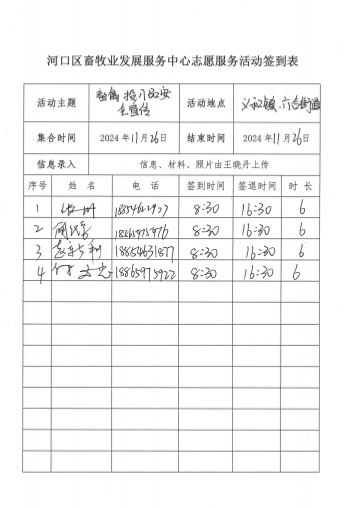 河口区畜牧业发展服务中心志愿服务活动签到表
活动主题 全宣传 活动地点 义和镇、六合街道
集合时间 2024年11月26日 结束时间 2024年11月26日
信息录入 信息、材料、照片由王晓丹上传
序号 姓 名 电 话 签到时间 签退时间 时 长
1 8:30 16:30 6
2 8:30 16:30 6
3 18854631877 8:30 16:30 6
4 18865975922 8:30 16:30 6